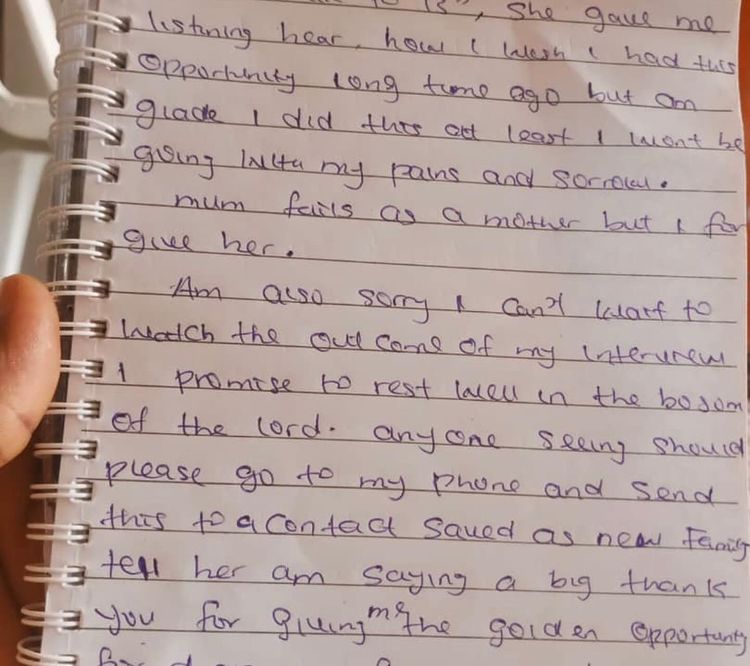 to 13", She gave me
listining hear, how I wish I had this
opportunity long time ago but am
glade I did this att least I wont be
going with my pains and sorrow.
mum fails as a mother but I for
give her.
Am also sorry I can't wait to
watch the out come of my interview
I promise to rest well in the bosom
of the lord. anyone seeing should
please go to my phone and send
this to a contact saved as new Family
tell her am saying a big thank
you for giving me the golden opportunity